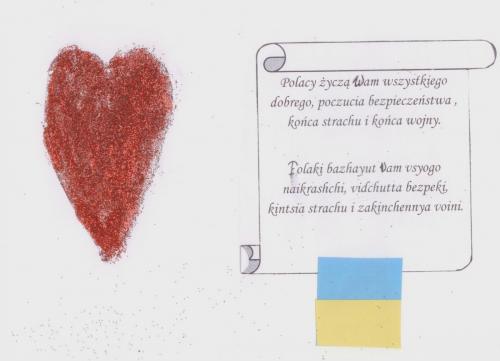 Polacy życzą Wam wszystkiego
dobrego, poczucia bezpieczeństwa ,
końca strachu i końca wojny.
Polaki bazhayut Vam vsyogo
naikrashchi, vidchutta bezpeki,
kintsia strachu i zakinchennya voini.